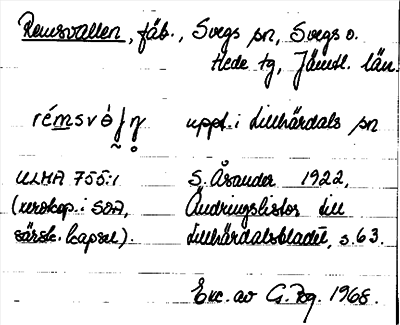 Remsvallen, fäb., Svegs sn, Svegs o.
Hede tg, Jämtl. län.
uppt. i Lillhärdals sn
ULMA 755:1 S. Åsander 1922,
(xerokop. i SOA, Ändringslistor till
särsk. kapsel). Lillhärdalsbladet, s. 63.
Exc. av G. 1968.